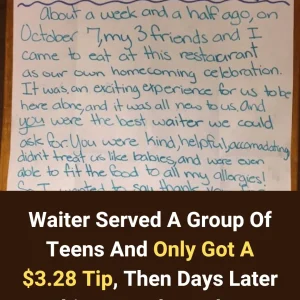 About a week and a half ago, on
October 7, my 3 friends and I
came to eat at this restaurant
as our own homecoming celebration.
It was an exciting experience for us to be
here alone, and it was all new to us. And
you were the best waiter we could
ask for. You were kind, helpful, accomadating,
didn't treat us like babies, and were even
able to fit the food to all my allergies!
So I wanted to say thank you
Waiter Served A Group Of
Teens And Only Got A
$3.28 Tip, Then Days Later